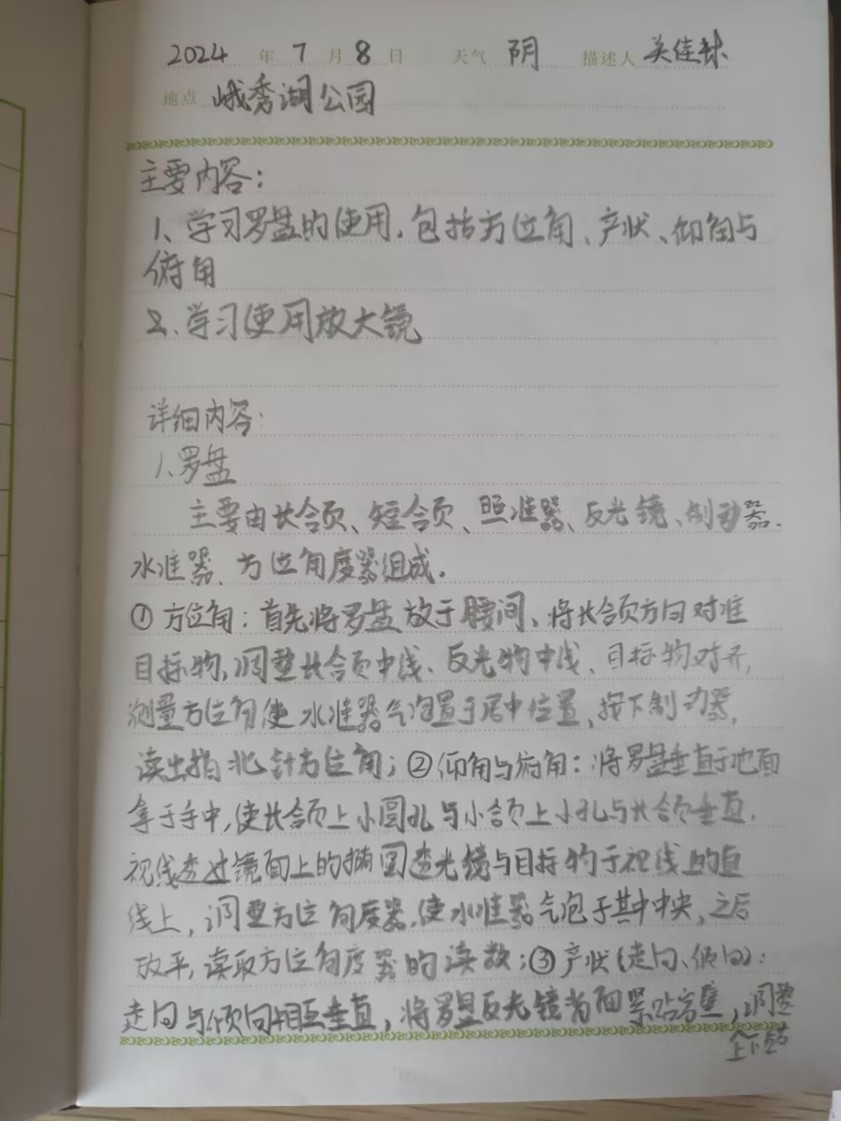 2024 年 7 月 8 日 天气 阴 描述人 关佳
地点 峨秀湖公园
主要内容：
1、学习罗盘的使用，包括方位角、产状、仰角与
俯角
2.学习使用放大镜
详细内容：
1.罗盘
主要由长合页、短合页、照准器、反光镜、制动器、
水准器、方位角度器组成。
① 方位角：首先将罗盘放于腰间、将长合页方向对准
目标物，调整长合页中线、反光物中线、目标物对齐，
测量方位角使水准器气泡置于居中位置，按下制动器，
读出指北针方位角；②仰角与俯角：将罗盘垂直于地面
拿于手中，使长合页上小圆孔与小合页上小孔与长合页垂直.
视线透过镜面上的椭圆透光镜与目标物于视线上的直
线上，调整方位角度器，使水准器气泡于其中中央，之后
放平，读取方位角度器的读数；③产状（走向、倾向）：
走向与倾向相互垂直，将罗盘反光镜背面紧贴岩壁，调整